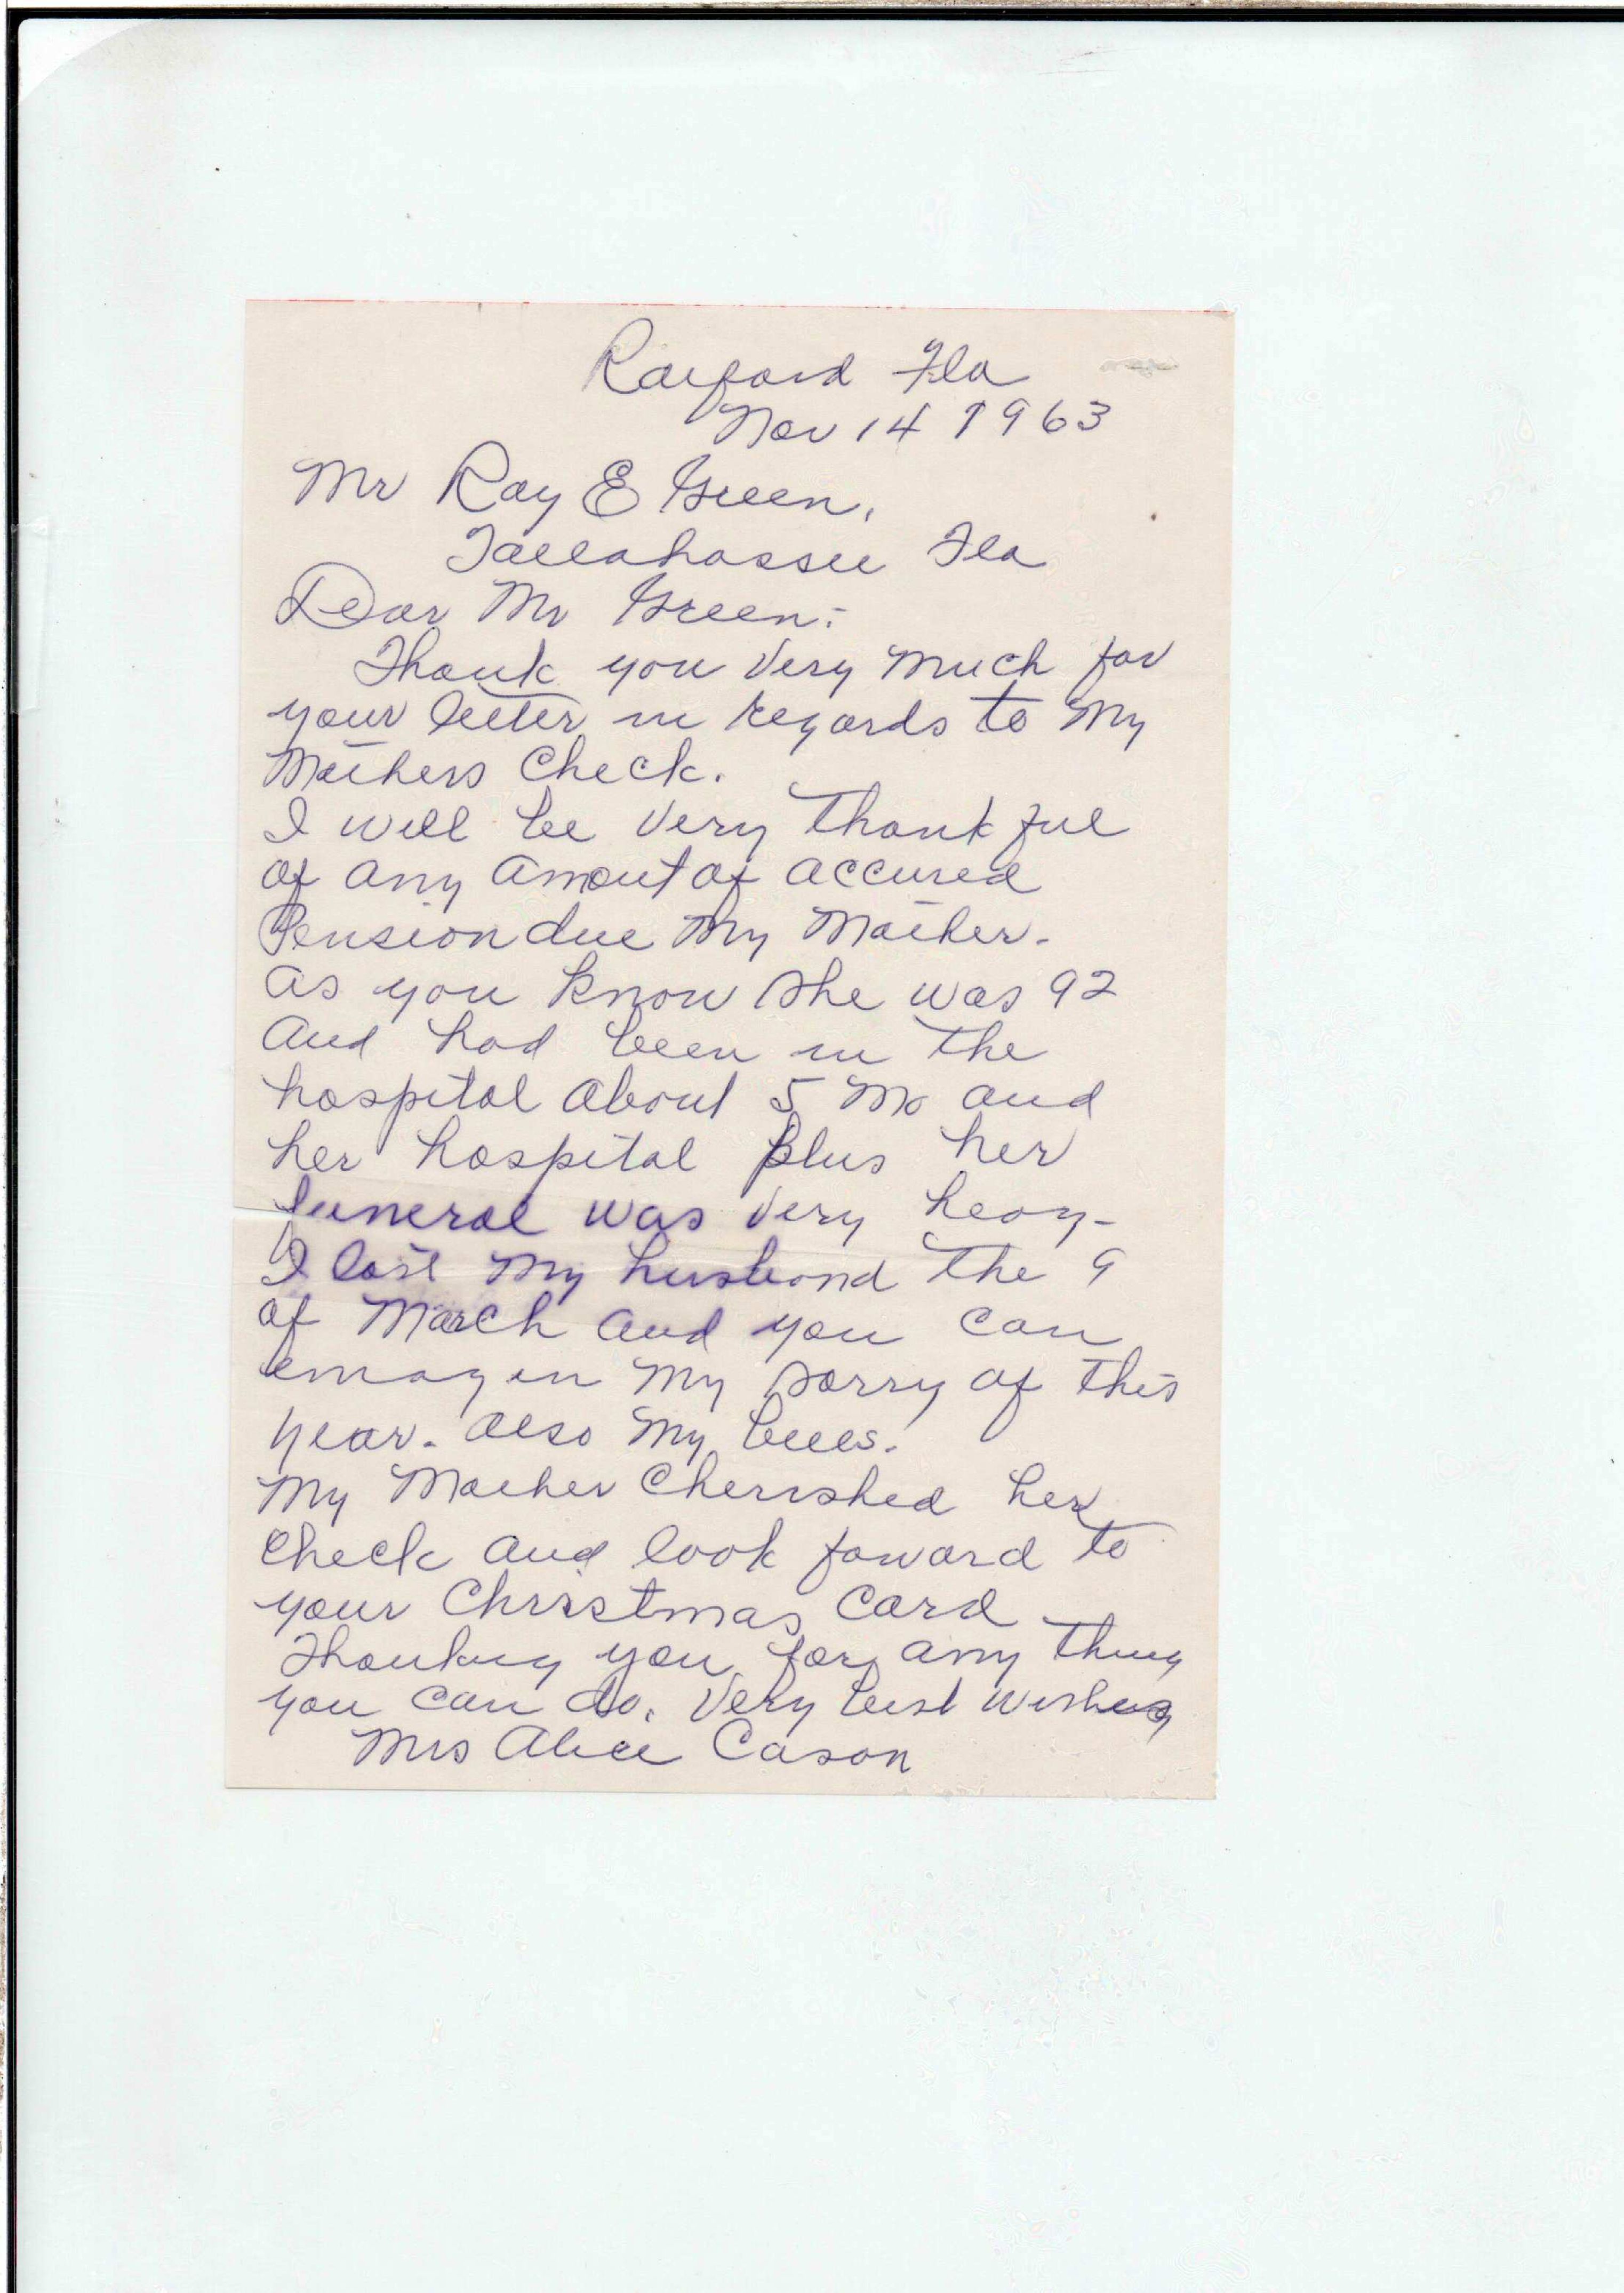 Raiford Fla
Nov 14 1963
Mr Ray E Green,
Tallahassee Fla
Dear Mr Green:
Thank you Very Much for
your letter in regards to My
Mothers Check.
I will be Very Thankful
of any amout of accured
Pension due My Mother.
as you know she was 92
and had been in the
hospital about 5 Mo and
her hospital plus her
funeral was Very heavy-
I lost My husband the 9
of March and you can
emagen My sorry of this
year. also My bills.
My Mother Cherished her
Check and look foward to
your Christmas Card
Thanking you for any thing
you can do. Very best wishes
Mrs Alice Cason